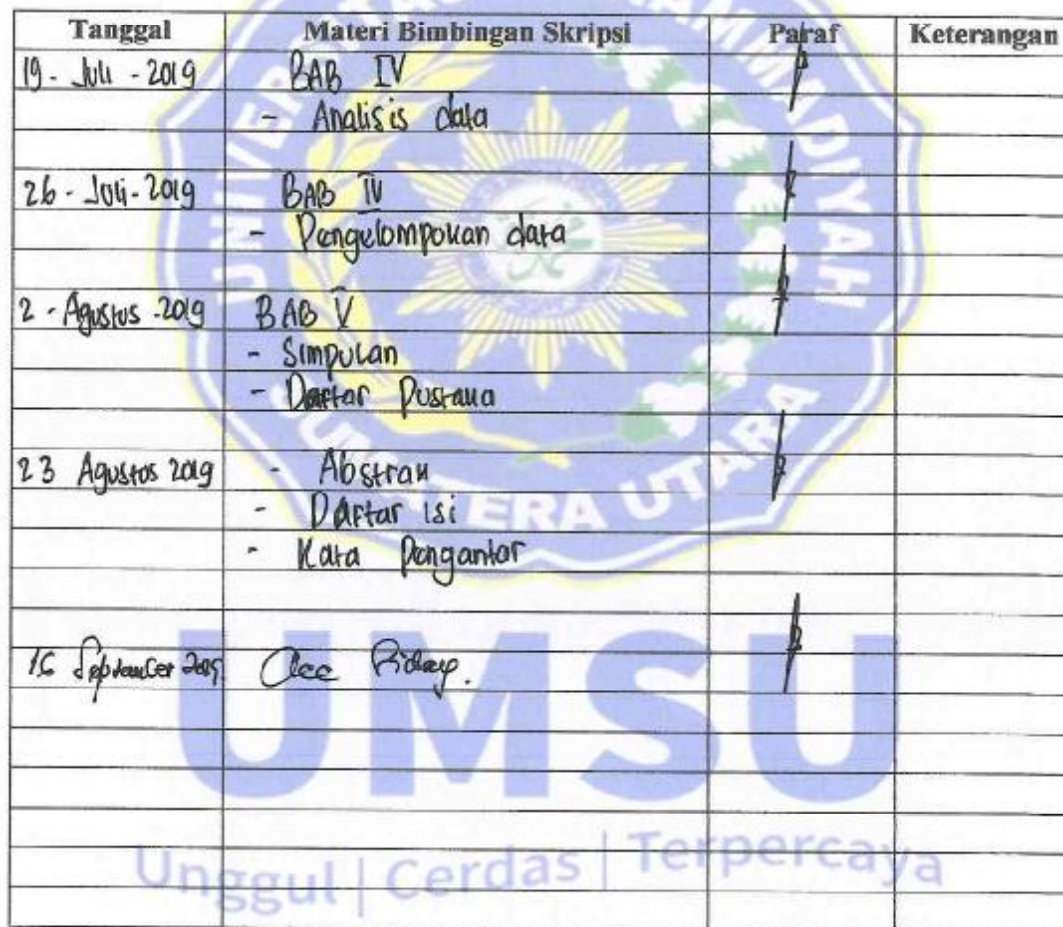 Tanggal Materi Bimbingan Skripsi Paraf Keterangan
19 - Juli - 2019 BAB IV
- Analisis data
26 - Juli - 2019 BAB IV
- Pengelompokan data
2 - Agustus - 2019 BAB V
- Simpulan
- Daftar Pustaka
23 Agustus 2019 - Abstrak
- Daftar isi
- Kata Pengantar
16 September 2019 Acc Sidang.
UNIVERSITAS MUHAMMADIYAH
SUMATERA UTARA
UMSU
Unggul | Cerdas | Terpercaya